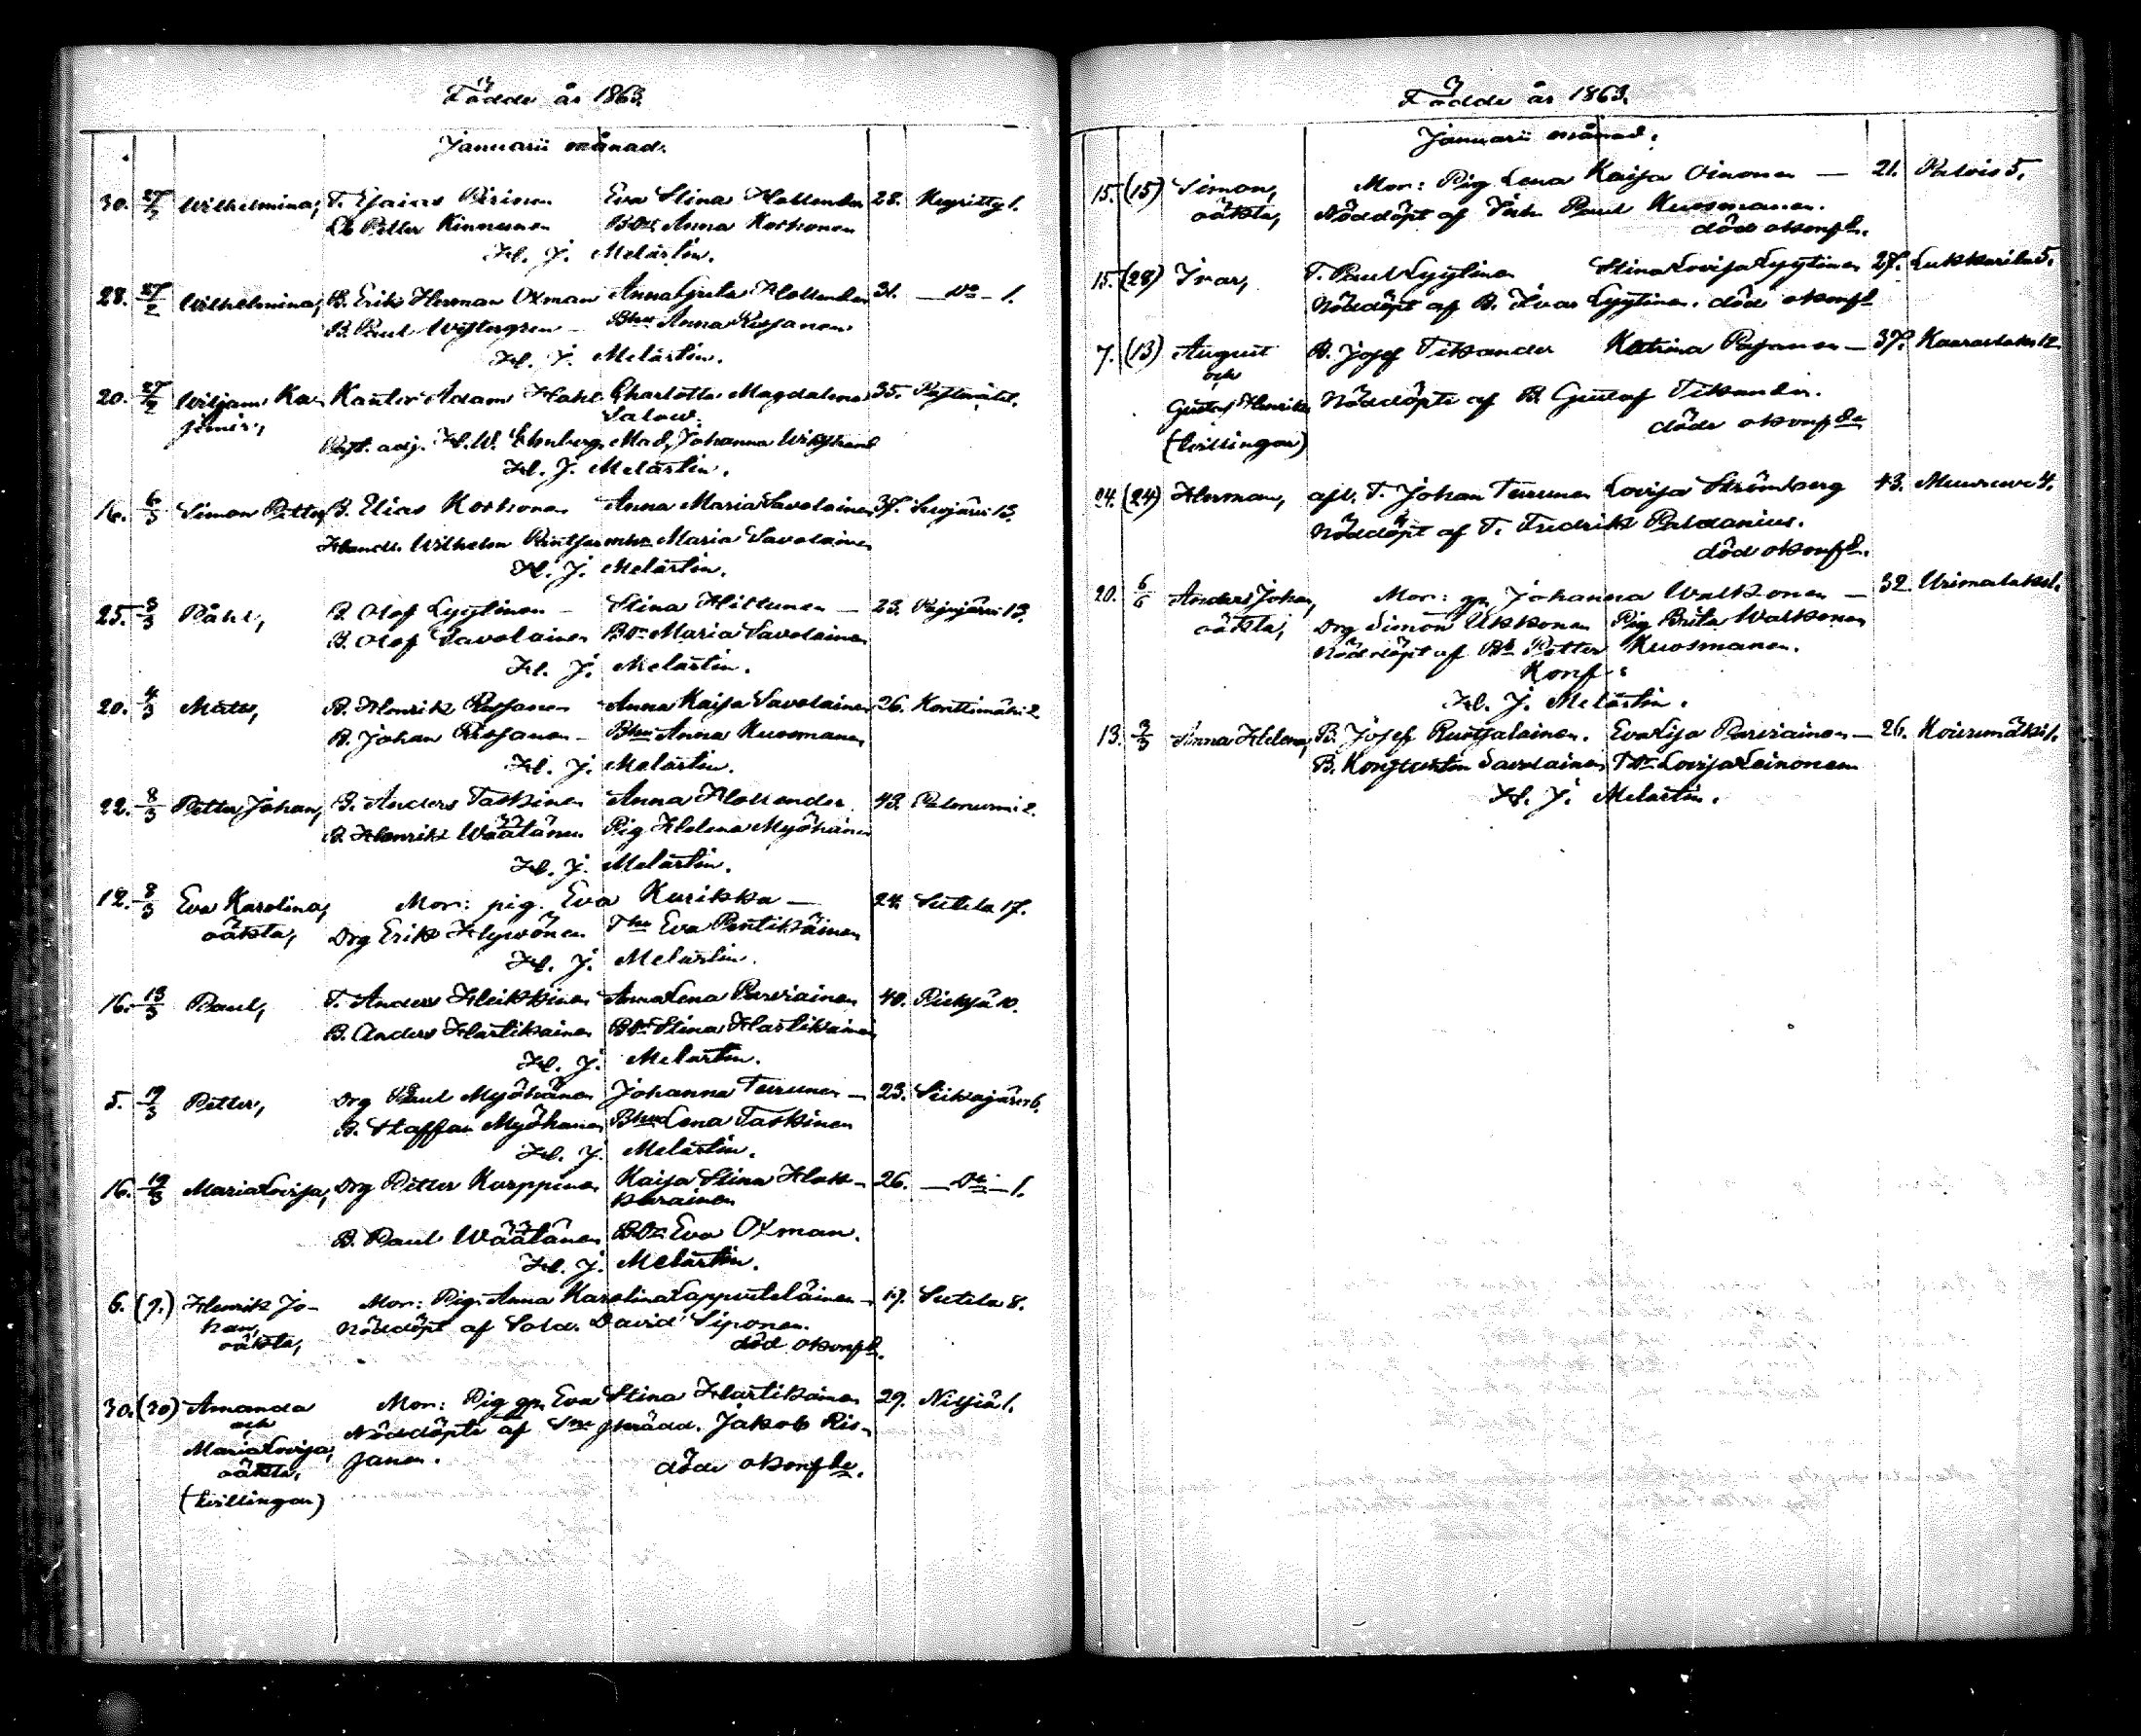 Födde år 1863.
Januarii månad.
30. 27/2 Wilhelmina, T. Esaias Pirinen Eva Stina Hallender 28. 1.
Petter Kinnunen Anna Korhonen
H. J. Melartin.
28. 27/2 Wilhelmina, B. Erik Herman Oxman Anna Greta Hollender 31. Do 1.
B. Paul Westergren Bhu Anna Risjanen
H. J. Melartin.
20. 27/2 Wiljam Ka- Kantor Adam Hahl Charlotta Magdalena 35.
simir, Salow.
Past. adj. H. W. Ehnberg, Mad. Johanna Wikstrand
H. J. Melartin.
16. 6/3 Simon Petter, B. Elias Korhonen Anna Maria Savolainen 37. 13.
Handl. Wilhelm Maria Savolainen
H. J. Melartin.
25. 3/3 Påhl, B. Olof Lyytinen – Stina Hiltunen – 23. Pajujärvi 13.
B. Olof Savolainen Bdr Maria Savolainen
H. J. Melartin.
20. 4/3 Matts, B. Henrik Risjanen Anna Kaisa Savolainen 26. Konttimäki 2.
B. Johan Risjanen – Bhu Anna Kuosmanen
H. J. Melartin.
22. 8/3 Petter Johan, B. Anders Taskinen Anna Hollender 43. Palonurmi 2.
B. Henrik Wäätänen Pig Helena Myöhänen
H. J. Melartin.
12. 8/3 Eva Karolina, Mor: pig. Eva Kurikka – 24. Sutela 17.
oäkta, Drg Erik Hyvönen Thu Eva Pentikäinen
H. J. Melartin.
16. 13/3 Paul, T. Anders Heikkinen Anna Lena Parviainen 40. Pieksä 10.
B. Anders Hartikainen Bdr Stina Hartikainen
H. J. Melartin.
5. 19/3 Petter, Drg Paul Myöhänen Johanna Turunen – 23. Siikajärvi 6.
B. Staffan Myöhänen Bhu Lena Taskinen
H. J. Melartin.
16. 19/3 Maria Lovisa, Drg Petter Korppinen Kaisa Stina Hak- 26. – Do – 1.
karainen
B. Paul Wäätänen Bdr Eva Oxman.
H. J. Melartin.
6. (9.) Henrik Jo- Mor: Pig. Anna Karolina Lappveteläinen – 19. Sutela 8.
han, Nöddöpt af Sold. David Siponen.
oäkta, död okonfd.
30. (30) Amanda Mor: Pig gn Eva Stina Hartikainen 29. Nilsiä 1.
och Nöddöpte af Jakob Ris-
Maria Lovisa, janen.
oäkta, döde okonfde.
(tvillingar)
Födde år 1863.
Januarii månad.
15. (15) Simon, Mor: Pig Lena Kaisa Oinonen – 21. Palois 5.
oäkta, Nöddöpt af Inh. Paul Kuosmanen.
död okonfd.
15. (28) Ivar, T. Paul Lyytinen Stina Lovisa Lyytinen 27. Lukkarila 5.
Nöddöpt af B. Ivar Lyytinen. död okonfd
7. (13) August B. Josef Tikander Katrina Pasanen – 37. Kaaraslaks 12.
och
Gustaf Henrik, Nöddöpte af B. Gustaf Tikander.
döde okonfde
(tvillingar)
24. (24) Herman, afl. T. Johan Turunen Lovisa Strömberg 43. Muuruvesi 4.
Nöddöpt af T. Fredrik Paldanius.
död okonfd.
20. 6/6 Anders Johan, Mor: gn Johanna Walkonen – 32. Urimolaks 1.
oäkta, Drg Simon Ukkonen Pig Brita Walkonen
Nöddöpt af Petter Kuosmanen.
Konf:
H. J. Melartin.
13. 3/3 Anna Helena, B. Josef Ruotsalainen. Eva Lisa Parviainen – 26. Koivumäki 1.
B. Konstantin Savolainen Lovisa Leinonen
H. J. Melartin.